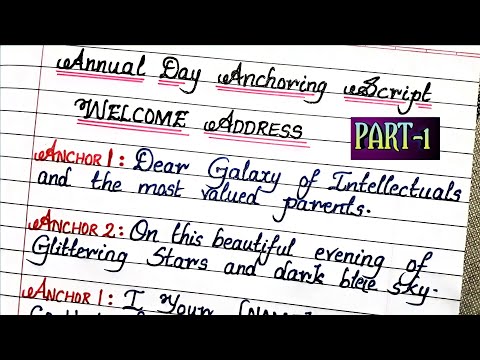 Annual Day Anchoring Script
WELCOME ADDRESS
PART-1
ANCHOR 1: Dear Galaxy of Intellectuals
and the most valued parents.
ANCHOR 2: On this beautiful evening of
Glittering Stars and dark blue sky.
ANCHOR 1: I Your [NAME]